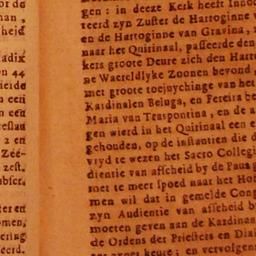 or do
nan,
heid
adix
en 44
ierde
een
een
2 en
Zee-
zest,
ubser,
ter en
omen,
ering
eerd.
gen: in deeze Kerk heeft Inno
teerd zyn Zuster de Hartoginne v
en de Hartoginne van Gravina,
naar het Quirinaal, passeerde den
kers groote Deure zich den Hart
ne Waereldlyke Zoonen bevond,
met groote toejuychinge van het
Kardinalen Beluga, en Pereira be
Maria van Traspontina, en de a
gen wierd in het Quirinaal een e
gehouden, op de instantien die d
vryd te wezen het Sacro Collegi
dientie van affcheid by de Paus g
met te meer spoed naar het Hof
men wil dat in gemelde Cong
zyn Audientie van affcheid b
moeten geven aan de Kardinaa
de Ordens der Priesters en Dia
keure; en vervolgens